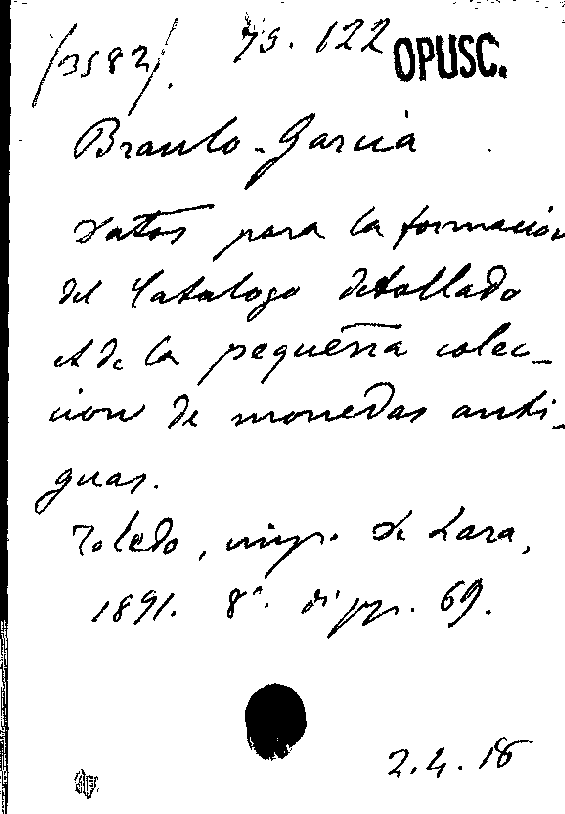 /3582/. 73.122 OPUSC.
Braulo-Garcia
Datos para la formación
del Catalogo detallado
de la pequeña colec-
cion de monedas anti-
guas.
Toledo, imp. de Lara,
1891. 8°. di pp. 69.
2.4.18